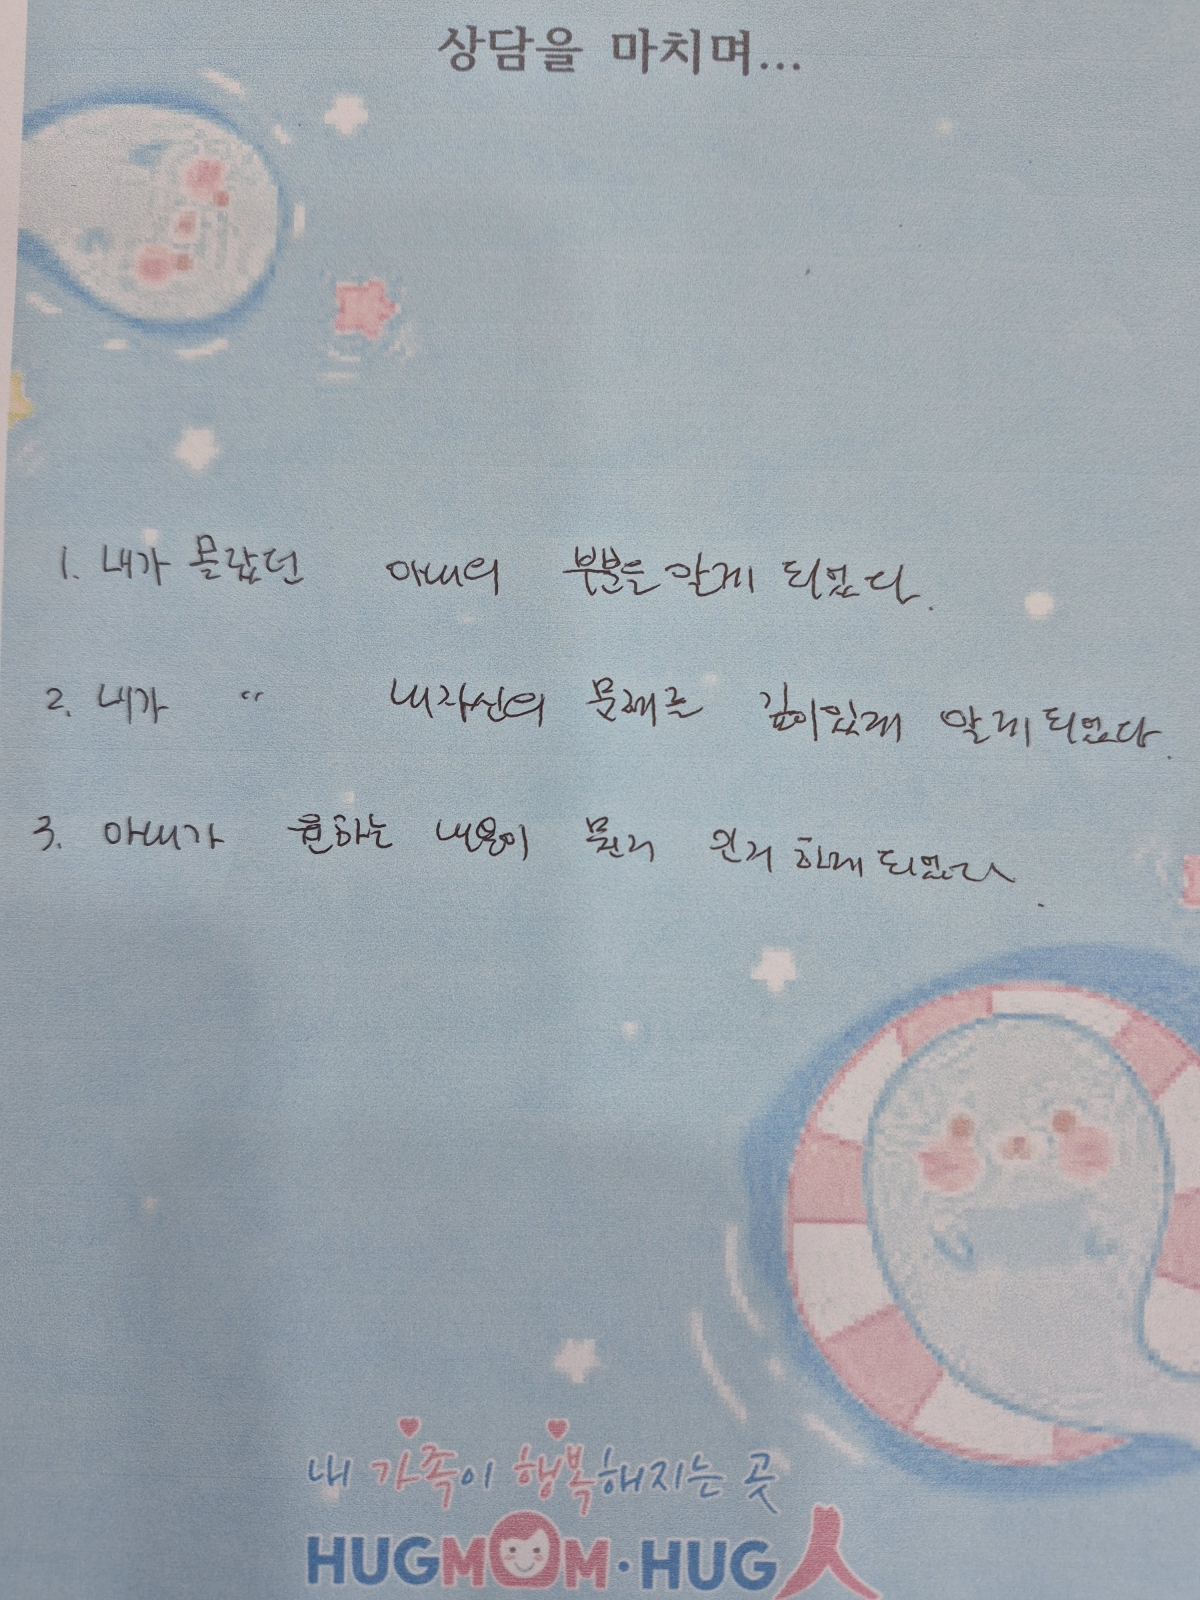 상담을 마치며...
1. 내가 몰랐던 아내의 부분을 알게 되었다.
2. 내가 " 내자신의 문제를 깊이있게 알게 되었다.
3. 아내가 원하는 내용이 뭔지 인지 하게 되었다.
내 가족이 행복해지는 곳
HUGMOM·HUG人